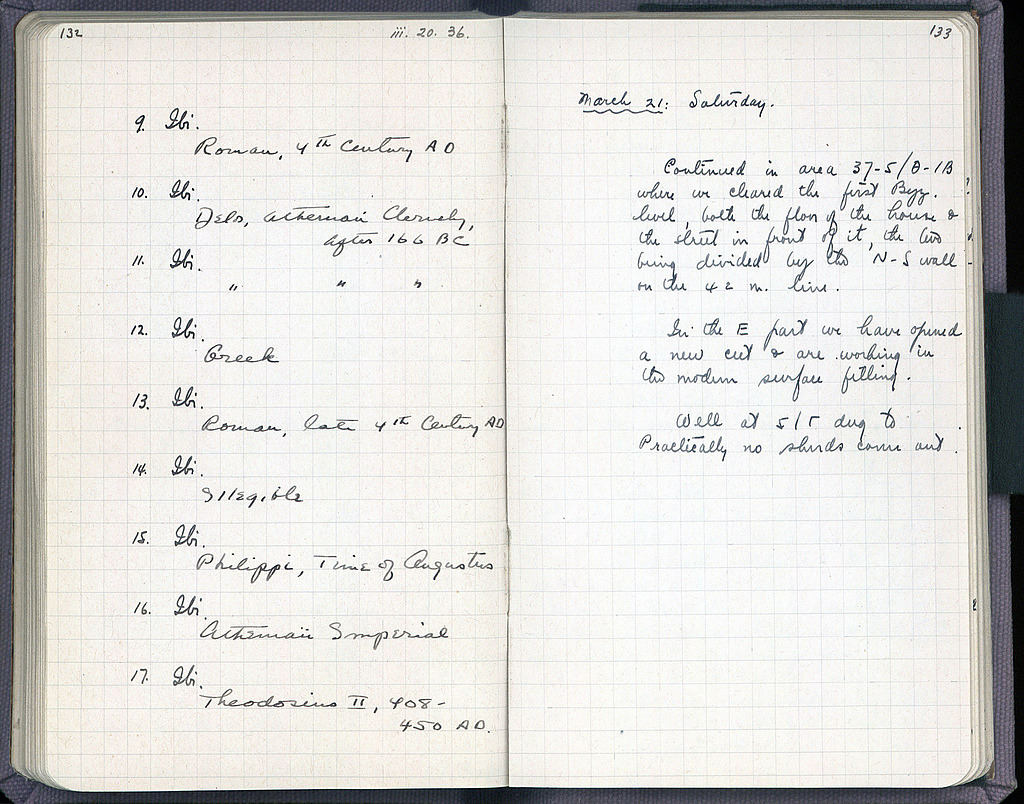 132
iii. 20. 36.
9. Ibi.
Roman, 4th Century AD
10. Ibi.
Delos, Athenian Cleruchy,
after 166 BC
11. Ibi.
" " "
12. Ibi.
Greek
13. Ibi.
Roman, late 4th Century AD
14. Ibi.
Illegible
15. Ibi.
Philippi, Time of Augustus
16. Ibi.
Athenian Imperial
17. Ibi.
Theodosius II, 408-
450 AD.
133
March 21: Saturday.
Continued in area 37-5/Θ-ΙΒ
where we cleared the first Byz.
level, both the floor of the house &
the street in front of it, the two
being divided by the N-S wall
on the 42 m. line.
In the E part we have opened
a new cut & are working in
the modern surface filling.
Well at 5/Γ dug to
Practically no sherds come out.